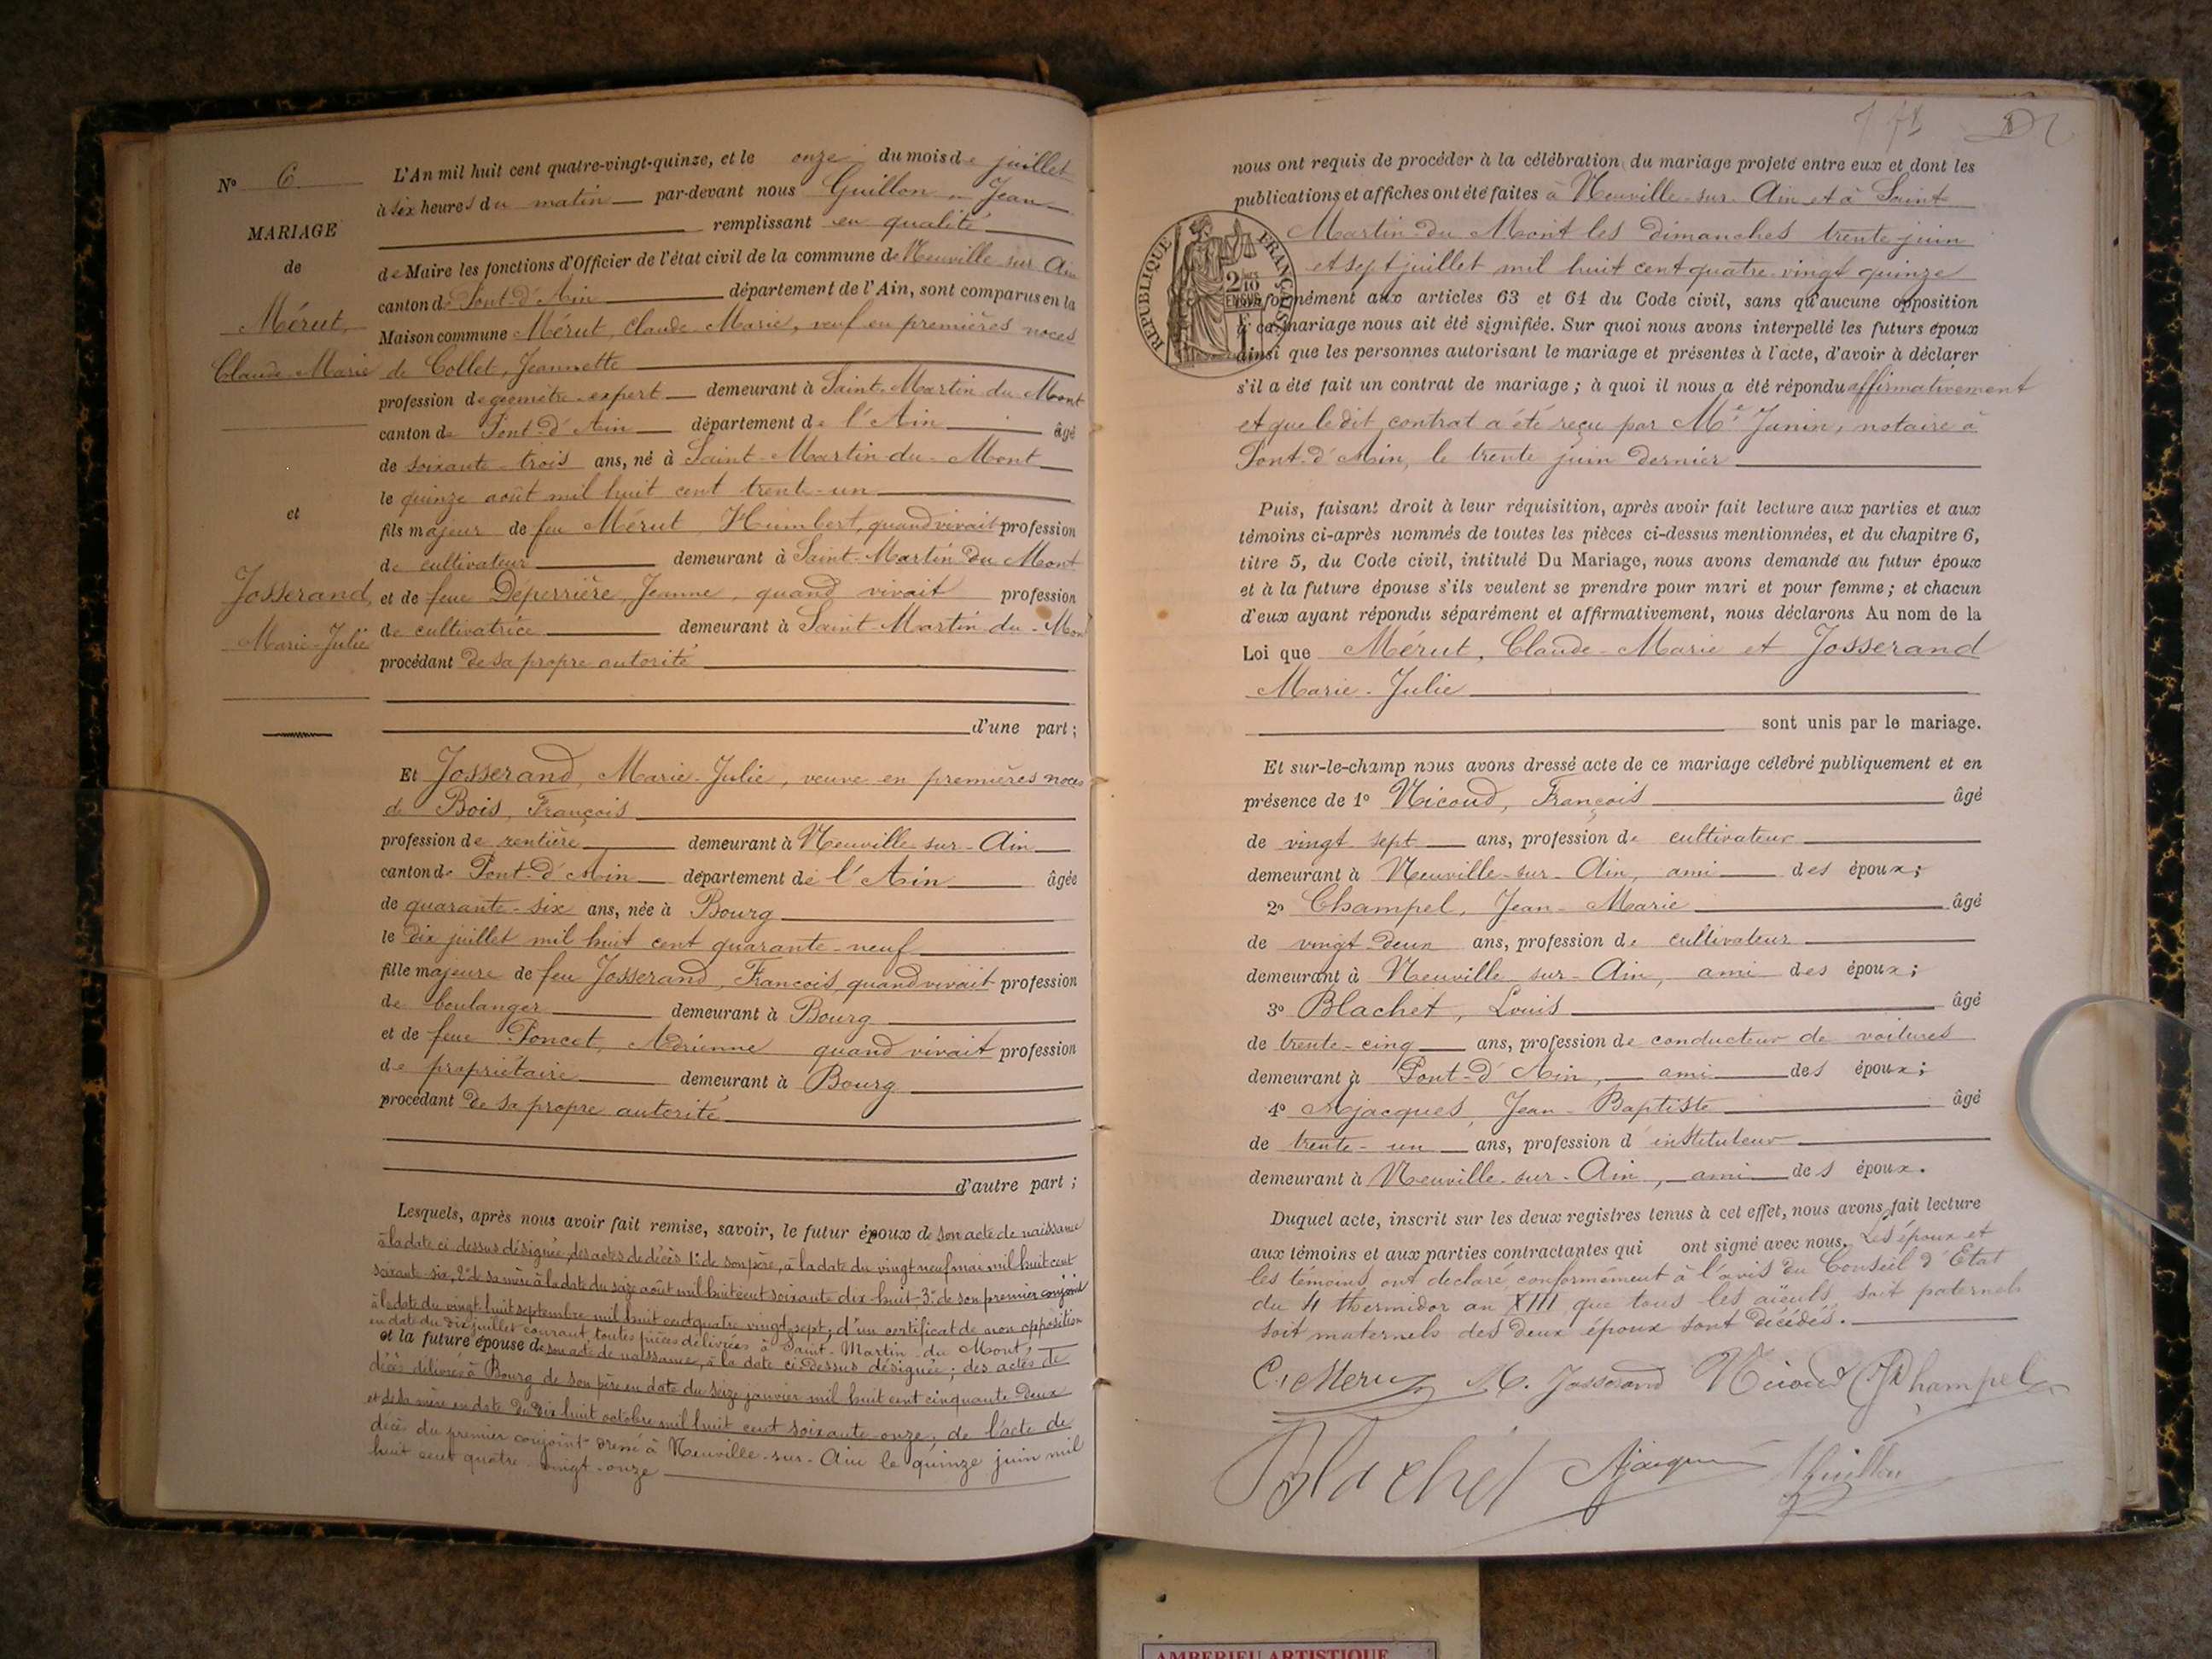 N° 6
MARIAGE
de
Mérut,
Claude-Marie
et
Josserand,
Marie-Julie
L'An mil huit cent quatre-vingt-quinze, et le onze du mois de juillet
à six heures du matin par-devant nous Guillon, Jean
remplissant en qualité
de Maire les fonctions d'Officier de l'état civil de la commune de Neuville sur Ain
canton de Pont-d'Ain département de l'Ain, sont comparus en la
Maison commune Mérut, Claude-Marie, veuf en premières noces
de Collet, Jeannette
profession de géomètre-expert demeurant à Saint-Martin du Mont
canton de Pont-d'Ain département de l'Ain âgé
de soixante-trois ans, né à Saint-Martin-du-Mont
le quinze août mil huit cent trente-un
fils majeur de feu Mérut, Humbert, quand vivait profession
de cultivateur demeurant à Saint-Martin du Mont
et de feue Déperrière, Jeanne, quand vivait profession
de cultivatrice demeurant à Saint-Martin du-Mont
procédant de sa propre autorité
d'une part;
Et Josserand, Marie-Julie, veuve en premières noces
de Bois, François
profession de rentière demeurant à Neuville-sur-Ain
canton de Pont-d'Ain département de l'Ain âgée
de quarante-six ans, née à Bourg
le dix juillet mil huit cent quarante-neuf
fille majeure de feu Josserand, François, quand vivait profession
de boulanger demeurant à Bourg
et de feue Poncet, Adrienne quand vivait profession
de propriétaire demeurant à Bourg
procédant de sa propre autorité
d'autre part;
Lesquels, après nous avoir fait remise, savoir, le futur époux de son acte de naissance
à la date ci-dessus désignée, des actes de décès 1° de son père, à la date du vingt neuf mai mil huit cent
soixante-six, 2° de sa mère à la date du seize août mil huit cent soixante dix-huit - 3° de son premier conjoint
à la date du vingt-huit septembre mil huit cent quatre vingt sept, d'un certificat de non opposition
en date du dix juillet courant, toutes pièces délivrées à Saint-Martin-du Mont;
et la future épouse de son acte de naissance, à la date ci-dessus désignée; des actes de
décès délivrés à Bourg de son père en date du seize janvier mil huit cent cinquante-deux
et de sa mère en date du dix huit octobre mil huit cent soixante-onze; de l'acte de
décès du premier conjoint dressé à Neuville-sur-Ain le quinze juin mil
huit cent quatre-vingt-onze
nous ont requis de procéder à la célébration du mariage projeté entre eux et dont les
publications et affiches ont été faites à Neuville-sur-Ain et à Saint
Martin-du Mont les dimanches trente juin
et sept juillet mil huit cent quatre-vingt quinze
RÉPUBLIQUE FRANÇAISE
conformément aux articles 63 et 64 du Code civil, sans qu'aucune opposition
à ce mariage nous ait été signifiée. Sur quoi nous avons interpellé les futurs époux
ainsi que les personnes autorisant le mariage et présentes à l'acte, d'avoir à déclarer
s'il a été fait un contrat de mariage; à quoi il nous a été répondu affirmativement
et que le dit contrat a été reçu par Me Janin, notaire à
Pont-d'Ain, le trente juin dernier
Puis, faisant droit à leur réquisition, après avoir fait lecture aux parties et aux
témoins ci-après nommés de toutes les pièces ci-dessus mentionnées, et du chapitre 6,
titre 5, du Code civil, intitulé Du Mariage, nous avons demandé au futur époux
et à la future épouse s'ils veulent se prendre pour mari et pour femme; et chacun
d'eux ayant répondu séparément et affirmativement, nous déclarons Au nom de la
Loi que Mérut, Claude-Marie et Josserand
Marie-Julie
sont unis par le mariage.
Et sur-le-champ nous avons dressé acte de ce mariage célébré publiquement et en
présence de 1° Nicoud, François âgé
de vingt sept ans, profession de cultivateur
demeurant à Neuville-sur-Ain, ami des époux;
2° Champel, Jean-Marie âgé
de vingt-deux ans, profession de cultivateur
demeurant à Neuville sur-Ain, ami des époux;
3° Blachet, Louis âgé
de trente-cinq ans, profession de conducteur de voitures
demeurant à Pont-d'Ain, ami des époux;
4° Ajacques, Jean-Baptiste âgé
de trente-un ans, profession d'instituteur
demeurant à Neuville-sur-Ain, ami des époux.
Duquel acte, inscrit sur les deux registres tenus à cet effet, nous avons fait lecture
aux témoins et aux parties contractantes qui ont signé avec nous. Les époux et
les témoins ont déclaré, conformément à l'avis du Conseil d'État
du 4 thermidor an XIII que tous les aïeuls soit paternels
soit maternels des deux époux sont décédés.
C. Merut M. Josserand Nicoud Champel
Blachet Ajacques Guillon
AMBERIEU ARTISTIQUE